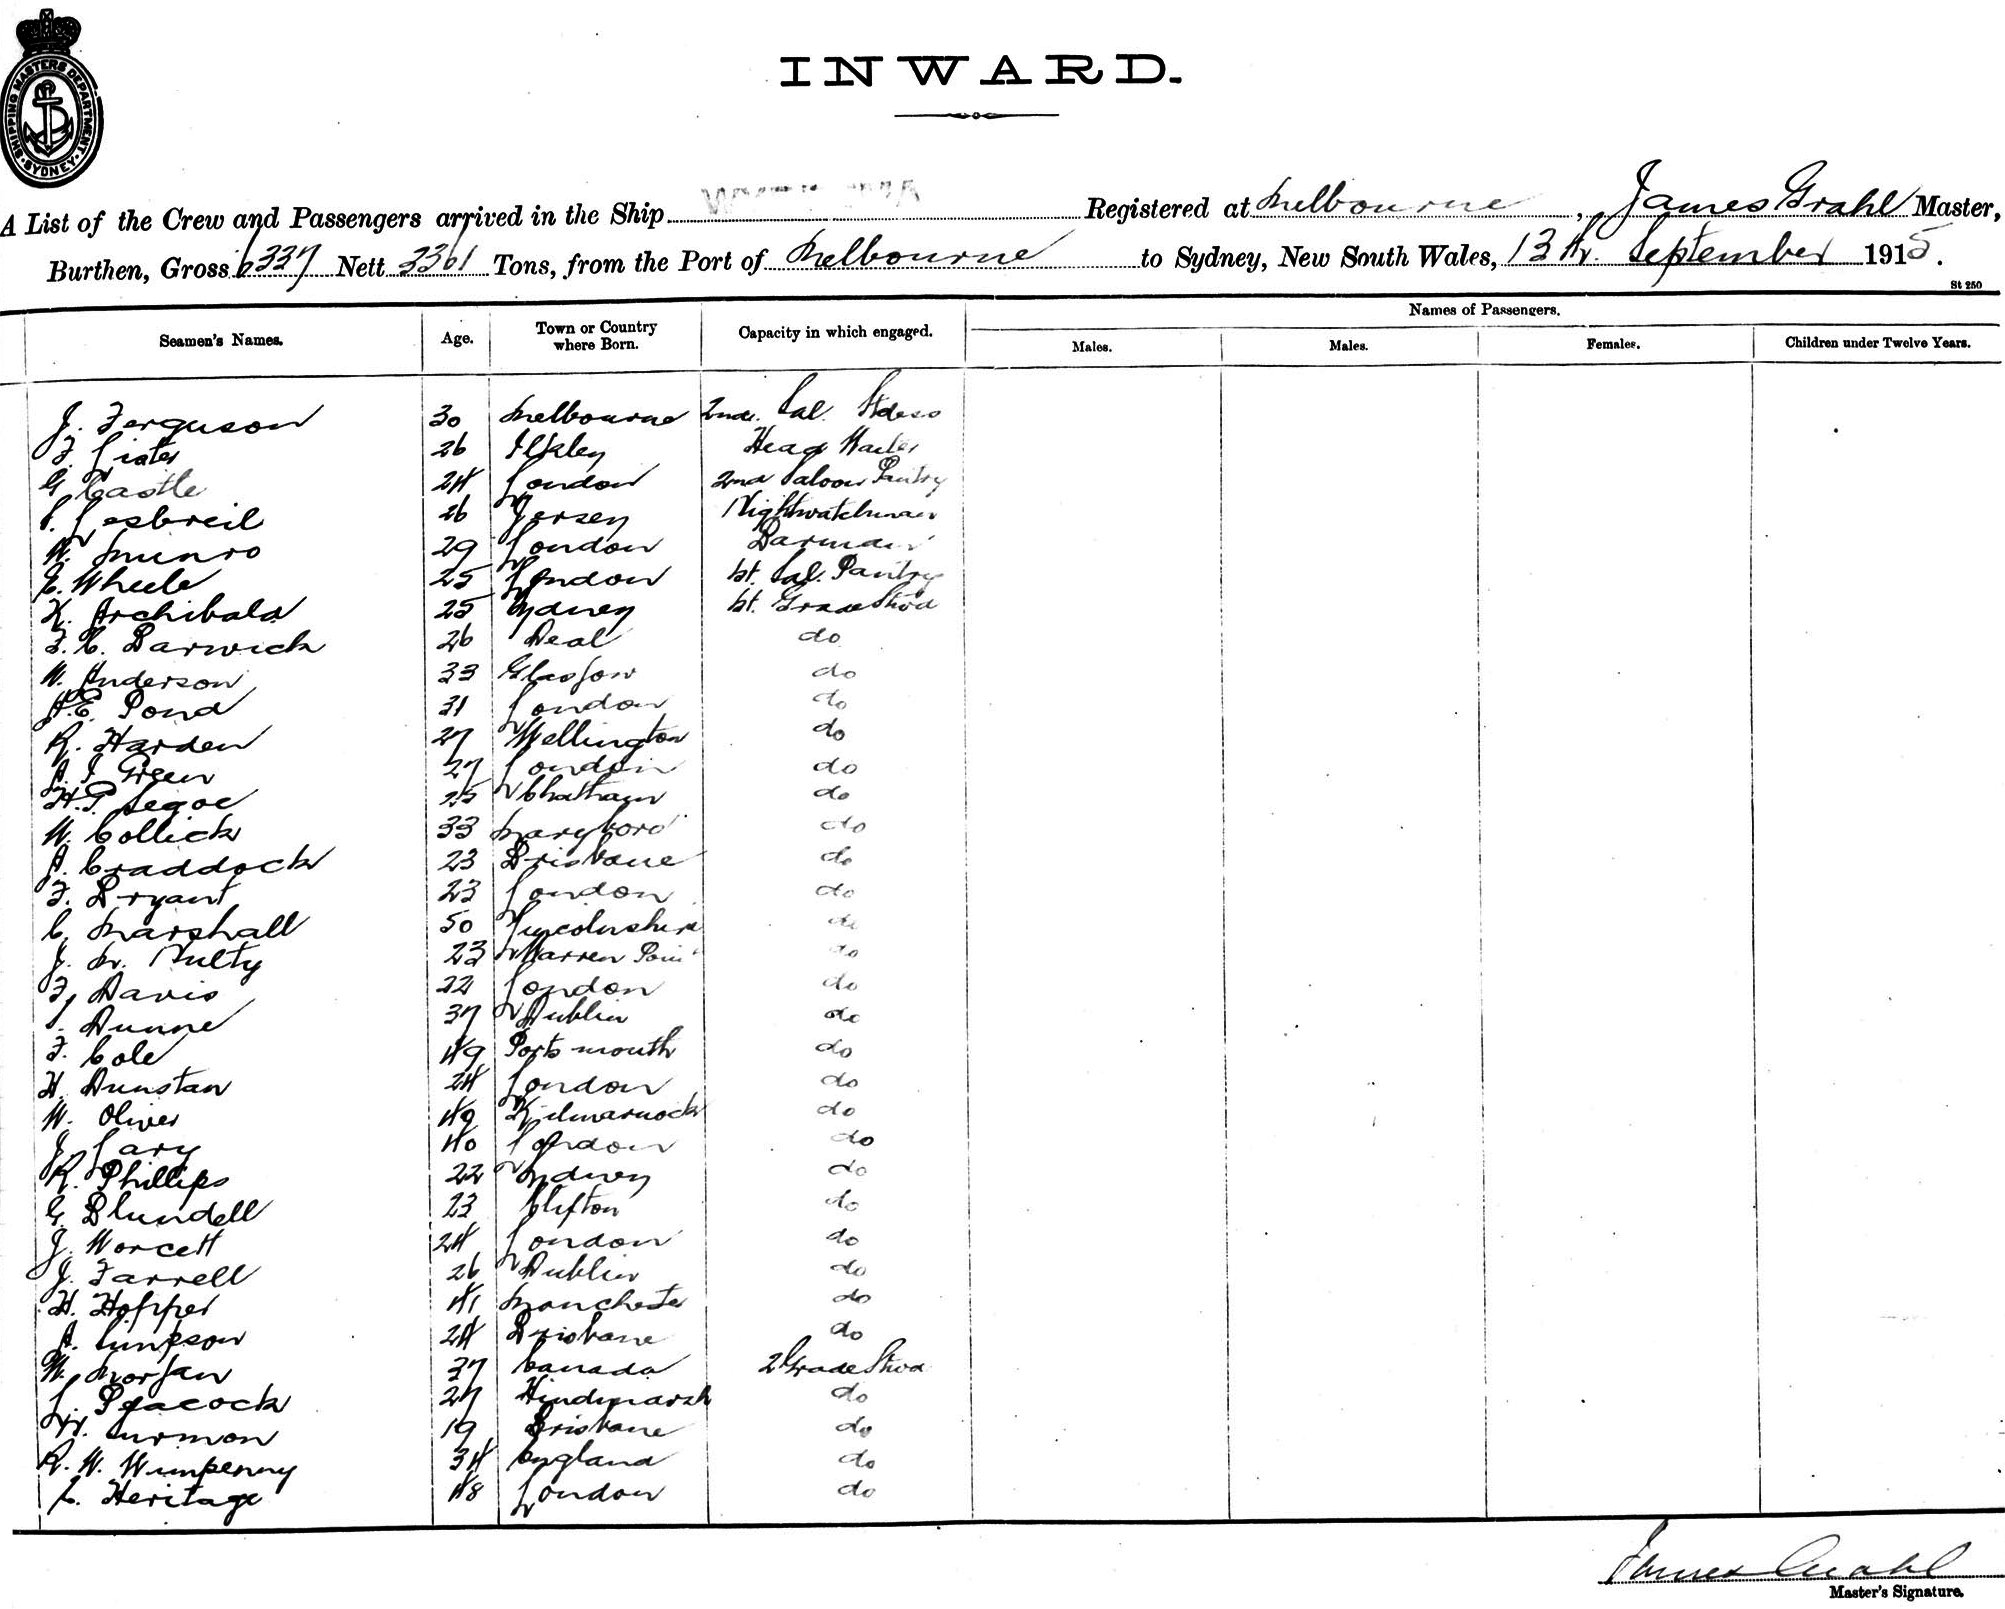 SHIPPING MASTERS DEPARTMENT SYDNEY
INWARD.
A List of the Crew and Passengers arrived in the Ship Registered at Melbourne, James Grahl Master,
Burthen, Gross 6337 Nett 3361 Tons, from the Port of Melbourne to Sydney, New South Wales, 13th. September 1915.
St 250
Names of Passengers.
Seamen's Names. Age. Town or Country where Born. Capacity in which engaged. Males. Males. Females. Children under Twelve Years.
J. Ferguson 30 Melbourne 2nd. Sal. Stdess
F. Lister 26 Ilkley Head Waiter
G. Castle 24 London 2nd Saloon Pantry
Lesbreil 26 Jersey Nightwatchman
W. Munro 29 London Barman
C. Wheele 25 London 1st. Sal. Pantry
K. Archibald 25 Sydney 1st. Grade Stwd
F. C. Barwick 26 Deal do
W. Anderson 33 Glasgow do
A.E. Pond 31 London do
R. Harden 27 Wellington do
A. J Green 27 London do
H.P. Segoe 25 Chatham do
W. Collick 33 Maryboro do
A. Craddock 23 Brisbane do
F. Bryant 23 London do
C. Marshall 50 Lincolnshire do
J. Mc. Nulty 23 Warren Point do
F. Davis 22 London do
Dunne 37 Dublin do
F. Cole 49 Portsmouth do
H. Dunstan 24 London do
W. Oliver 49 Kilmarnock do
J. Lary 40 London do
R. Phillips 22 Sydney do
G. Blundell 23 Clifton do
J. Worcett 24 London do
J. Farrell 26 Dublin do
H. Hopper 41 Manchester do
A. Simpson 24 Brisbane do
W. Morgan 37 Canada 2 Grade Stwd
L. Peacock 27 Hindmarsh do
W. Surmon 19 Brisbane do
R. W. Wimpenny 34 England do
C. Heritage 48 London do
James Grahl
Master's Signature.